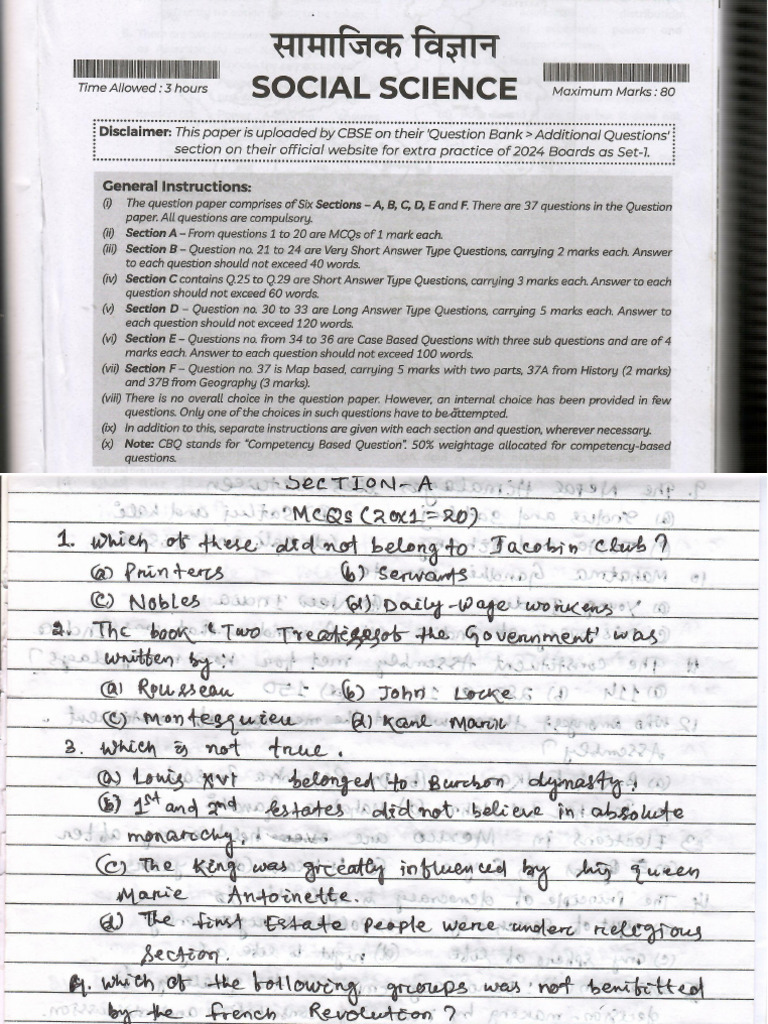 सामाजिक विज्ञान
Time Allowed : 3 hours
SOCIAL SCIENCE
Maximum Marks : 80
Disclaimer: This paper is uploaded by CBSE on their 'Question Bank > Additional Questions'
section on their official website for extra practice of 2024 Boards as Set-1.
General Instructions:
(i) The question paper comprises of Six Sections – A, B, C, D, E and F. There are 37 questions in the Question
paper. All questions are compulsory.
(ii) Section A – From questions 1 to 20 are MCQs of 1 mark each.
(iii) Section B – Question no. 21 to 24 are Very Short Answer Type Questions, carrying 2 marks each. Answer
to each question should not exceed 40 words.
(iv) Section C contains Q.25 to Q.29 are Short Answer Type Questions, carrying 3 marks each. Answer to each
question should not exceed 60 words.
(v) Section D – Question no. 30 to 33 are Long Answer Type Questions, carrying 5 marks each. Answer to
each question should not exceed 120 words.
(vi) Section E – Questions no. from 34 to 36 are Case Based Questions with three sub questions and are of 4
marks each. Answer to each question should not exceed 100 words.
(vii) Section F – Question no. 37 is Map based, carrying 5 marks with two parts, 37A from History (2 marks)
and 37B from Geography (3 marks).
(viii) There is no overall choice in the question paper. However, an internal choice has been provided in few
questions. Only one of the choices in such questions have to be attempted.
(ix) In addition to this, separate instructions are given with each section and question, wherever necessary.
(x) Note: CBQ stands for "Competency Based Question". 50% weightage allocated for competency-based
questions.
SECTION-A
MCQs (20x1=20)
1. Which of these did not belong to Jacobin Club?
(a) Printers (b) Servants
(c) Nobles (d) Daily-wage workers
2. The book 'Two Treatises of the Government' was
written by:
(a) Rousseau (b) John Locke
(c) Montesquieu (d) Karl Marx
3. Which is not true.
(a) Louis XVI belonged to Burbon dynasty.
(b) 1st and 2nd Estates did not believe in absolute
monarchy.
(c) The King was greatly influenced by his queen
Marie Antoinette.
(d) The first Estate people were under religious
section.
4. Which of the following groups was not benifitted
by the French Revolution?